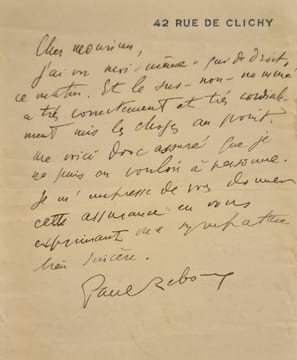 42 RUE DE CLICHY
Cher monsieur,
J'ai vu moi-même "qui de droit,
ce matin. Et le sus-non-nommé
a très correctement et très cordiale-
ment mis les choses au point.
me voici donc assuré que je
ne puis en vouloir à personne.
Je m'empresse de vous donner
cette assurance en vous
exprimant ma sympathie
bien sincère.
Paul Reboux